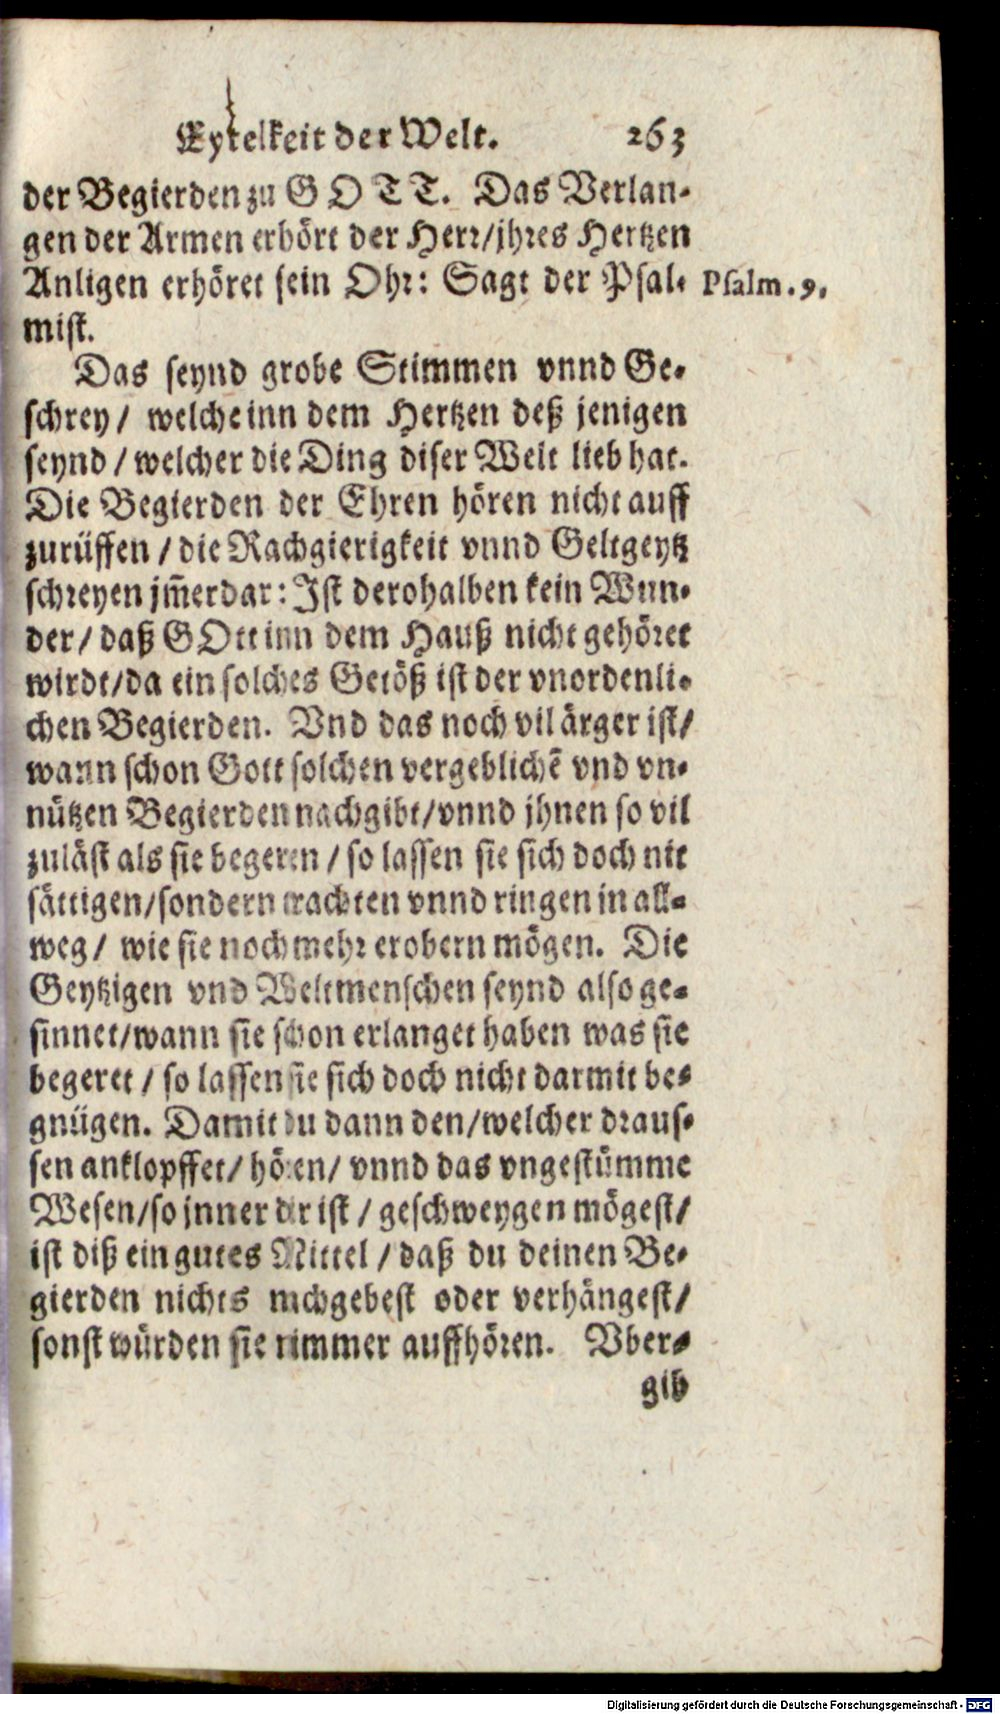 Eytelkeit der Welt. 263
der Begierden zu GOTT. Das Verlan-
gen der Armen erhört der Herr/jhres Hertzen
Anligen erhöret sein Ohr: Sagt der Psal- Psalm. 9.
mist.
Das seynd grobe Stimmen vnnd Ge-
schrey / welche inn dem Hertzen deß jenigen
seynd / welcher die Ding diser Welt lieb hat.
Die Begierden der Ehren hören nicht auff
zurüffen / die Rachgierigkeit vnnd Geltgeytz
schreyen jm̃erdar: Ist derohalben kein Wun-
der/ daß GOtt inn dem Hauß nicht gehöret
wirdt/da ein solches Getöß ist der vnordenli-
chen Begierden. Vnd das noch vil ärger ist/
wann schon Gott solchen vergeblichē vnd vn-
nützen Begierden nachgibt/vnnd jhnen so vil
zuläst als sie begeren / so lassen sie sich doch nit
sättigen/sondern trachten vnnd ringen in all-
weg/ wie sie noch mehr erobern mögen. Die
Geytzigen vnd Weltmenschen seynd also ge-
sinnet/wann sie schon erlanget haben was sie
begeret / so lassen sie sich doch nicht darmit be-
gnügen. Damit du dann den/welcher draus-
sen anklopffet/ hören/ vnnd das vngestümme
Wesen/so jnner dir ist / geschweygen mögest/
ist diß ein gutes Mittel / daß du deinen Be-
gierden nichts nachgebest oder verhängest/
sonst würden sie nimmer auffhören. Vber-
gib
Digitalisierung gefördert durch die Deutsche Forschungsgemeinschaft - DFG